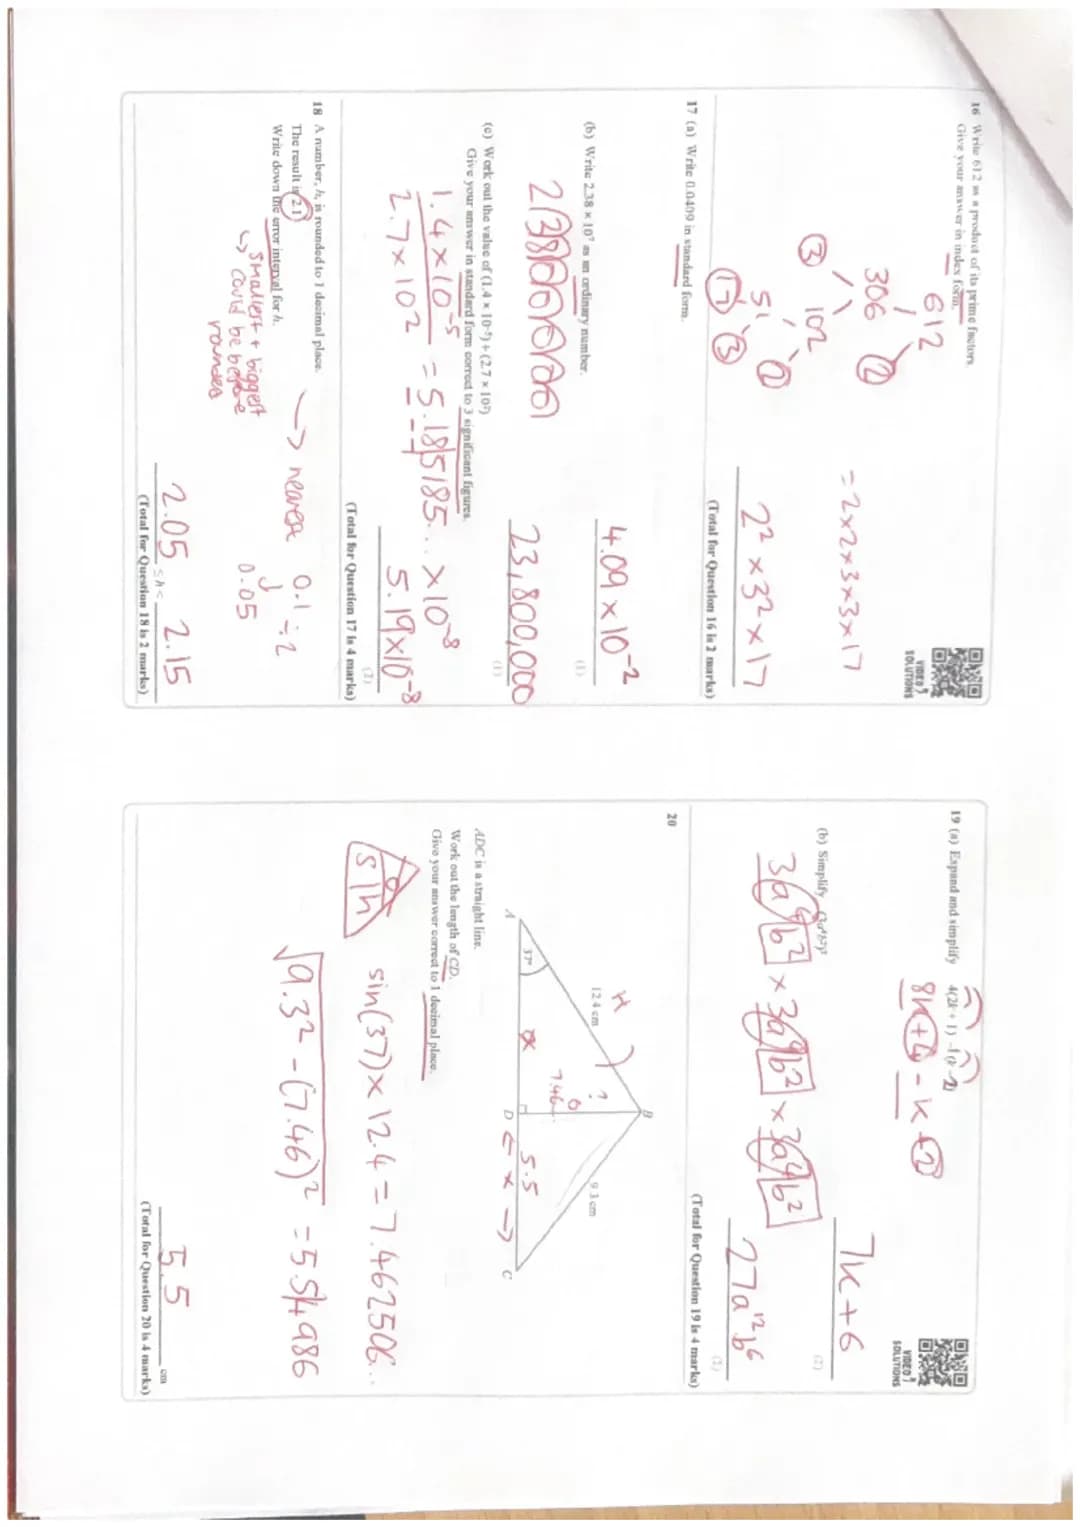 16 Write 612 as a product of its prime factors.
Give your answer in index form.
VIDEO
SOLUTIONS
612
306 2
3 102
51 2
17 3
= 2×2×3×3×17
2² × 3² × 17
(Total for Question 16 is 2 marks)
17 (a) Write 0.0409 in standard form.
4.09 × 10⁻²
(1)
(b) Write 2.38 × 10⁷ as an ordinary number.
23,800,000
(1)
(c) Work out the value of (1.4 × 10⁻⁵) ÷ (2.7 × 10²)
Give your answer in standard form correct to 3 significant figures.
1.4 × 10⁻⁵
2.7 × 10²
= 5.185185... × 10⁻⁸
5.19 × 10⁻⁸
(2)
(Total for Question 17 is 4 marks)
18 A number, h, is rounded to 1 decimal place.
The result is 2.1
Write down the error interval for h.
→ nearest 0.1 ÷ 2
0.05
↳ smallest + biggest
could be before
rounded
2.05 ≤ h < 2.15
(Total for Question 18 is 2 marks)
19 (a) Expand and simplify 4(2k + 1) –
VIDEO
SOLUTIONS
8k + 4 - k + 2
7k + 6
(2)
(b) Simplify (3a⁴b²)³
3a⁴b² × 3a⁴b² × 3a⁴b²
27a¹²b⁶
(2)
(Total for Question 19 is 4 marks)
20
B
H
12.4 cm
9.3 cm
?
o
7.46...
37°
5.5
A
D
C
← x →
ADC is a straight line.
Work out the length of CD.
Give your answer correct to 1 decimal place.
o
s h
sin(37) × 12.4 = 7.462506...
√9.3² - (7.46)² = 5.54986
5.5 cm
(Total for Question 20 is 4 marks)